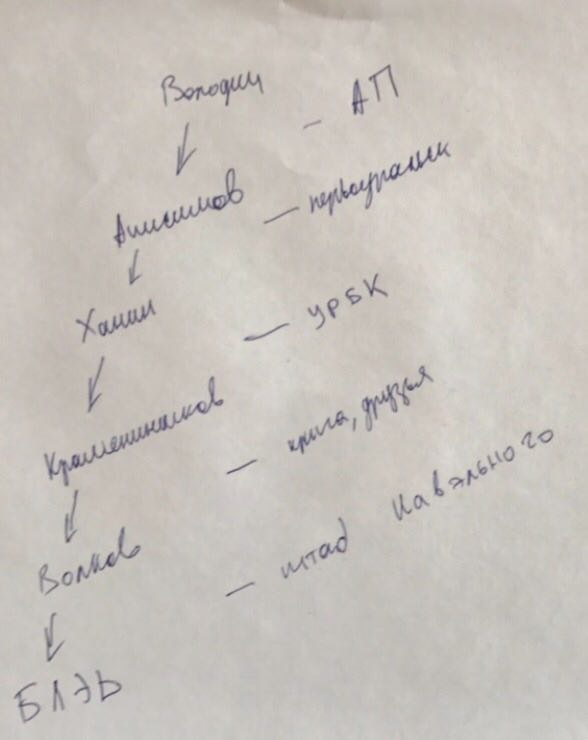 Володин
— АП
Анисимов
— первоуральск
Ханин
— УРБК
Крашенинников
— крыша, друзья
Волков
— штаб Навального
БЛЭЬ